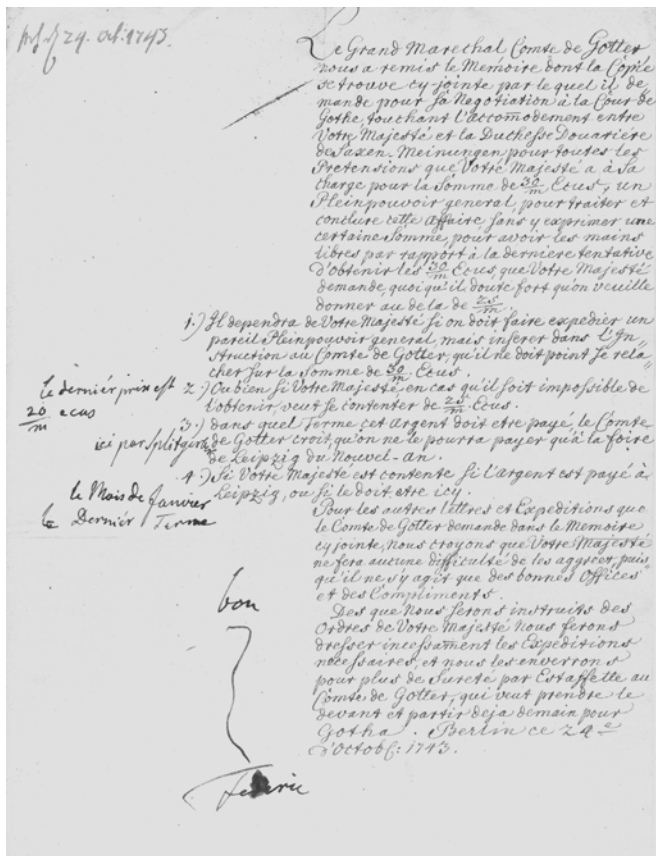 24. oct. 1743.
Le Grand Marechal Comte de Gotter
nous a remis le Memoire dont la Copie
se trouve cy jointe par le quel il de=
mande pour sa Negotiation à la Cour de
Gothe, touchant l'accomodement entre
Votre Majesté et la Duchesse Douariére
de Saxen-Meinungen pour toutes les
Pretensions que Votre Majesté a à Sa
charge pour la Somme de 30/m Ecus, un
Pleinpouvoir general, pour traiter et
conclure cette affaire sans y exprimer une
certaine Somme, pour avoir les mains
libres par rapport à la derniere tentative
d'obtenir les 30/m Ecus, que Votre Majesté
demande, quoi qu'il doute fort qu'on veuille
donner au de la de 25/m
1.) Il dependra de Votre Majesté si on doit faire expedier un
pareil Pleinpouvoir general, mais inserer dans l'In=
struction au Comte de Gotter, qu'il ne doit point se rela=
cher sur la Somme de 30/m Ecus.
2.) Ou bien si Votre Majesté, en cas qu'il soit impossible de
l'obtenir, veut se contenter de 25/m Ecus.
le derniér prix est
20/m ecus
3.) dans quel Terme cet Argent doit etre payé, le Comte
de Gotter croit, qu'on ne le pourra payer qu'à la foire
de Leipzig du Nouvel-an.
ici par Splitgerber
4.) Si Votre Majesté est contente si l'argent est payé à
Leipzig, ou si le doit etre icy.
le Mois de Janvier
le Derniér Terme
Pour les autres lettres et Expeditions que
le Comte de Gotter demande dans le Memoire
cy jointe, Nous croyons que Votre Majesté
ne fera aucune difficulté de les aggréer, puis
qu'il ne s'y agit que des bonnes Offices
et des Compliments.
Des que Nous serons instruits des
Ordres de Votre Majesté Nous ferons
dresser incessament les Expeditions
necessaires, et nous les enverrons
pour plus de Sureté par Estaffette au
Comte de Gotter, qui veut prendre le
devant et partir deja demain pour
Gotha. Berlin ce 24e
d'Octobr: 1743.
bon
Federic